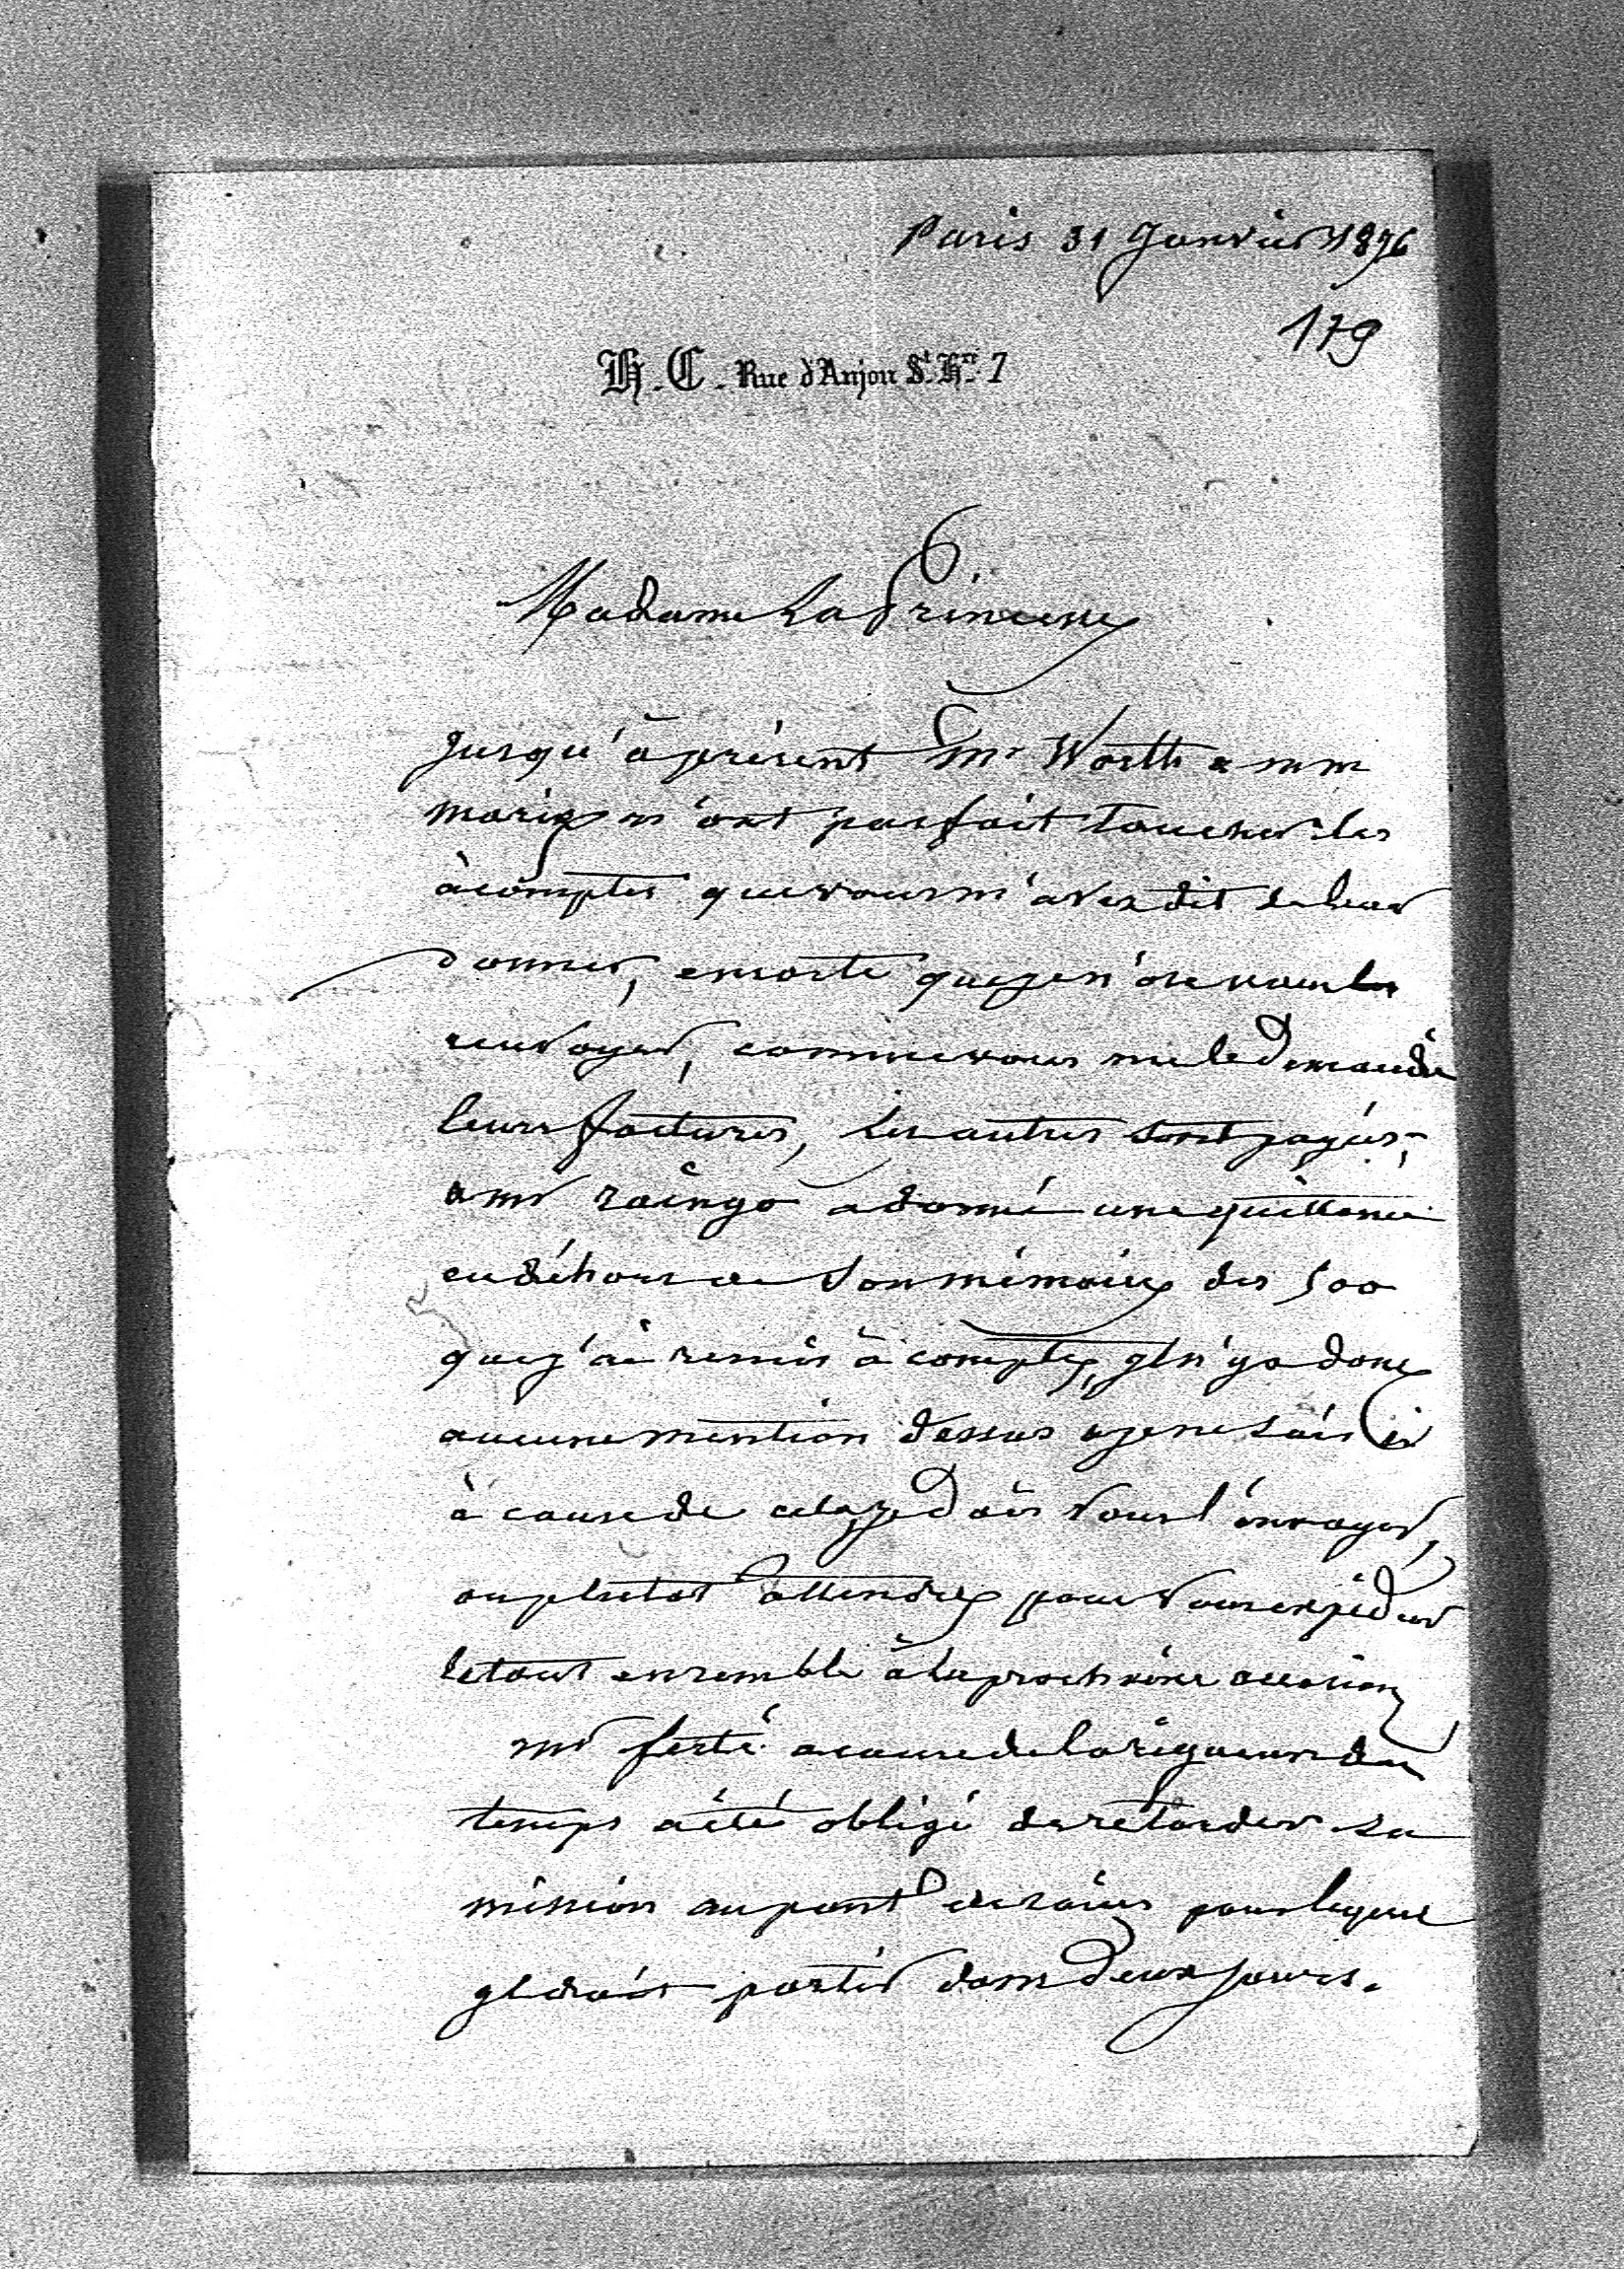 Paris 31 Janvier 1876
179
H. C. Rue d'Anjou St. Hré. 7
Madame La Princesse
Jusqu'à présent Mr Worth & mme
n'ont pas fait toucher les
àcomptes que vous m'avez dit de leur
donner, ensorte que je n'ose vous les
renvoyer, comme vous me le demandé
leurs factures, les autres sont payés;
mr raingo a donné une quittance
en déhors de son mémoire des 500
que j'ai remis à compte, il n'y a donc
aucune mention dessus & je ne sais si
à cause de cela je dois vous l'énvoyer,
ou plutot attendre pour vous expédier
le tout ensemble à la prochaine occasion
mr ferté a cause de la rigueur du
temps a été obligé de retarder sa
mission au pont pour lequel
il doit partir dans deux jours.